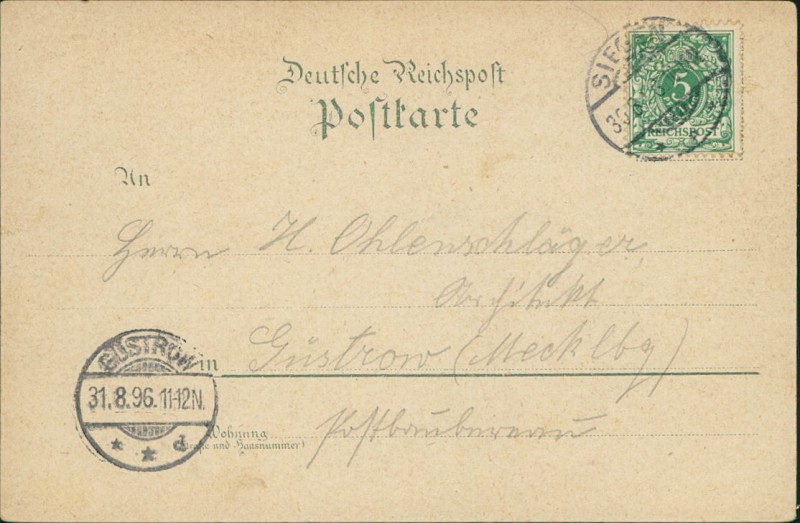 Deutsche Reichspost
Postkarte
SIEGEN
30 8
5
REICHSPOST
An
Herrn H. Ohlenschläger
Architekt
in Güstrow (Mecklbg)
Wohnung
(Straße und Hausnummer)
Postbaubureau
GÜSTROW
31.8.96.11-12N.
* * d